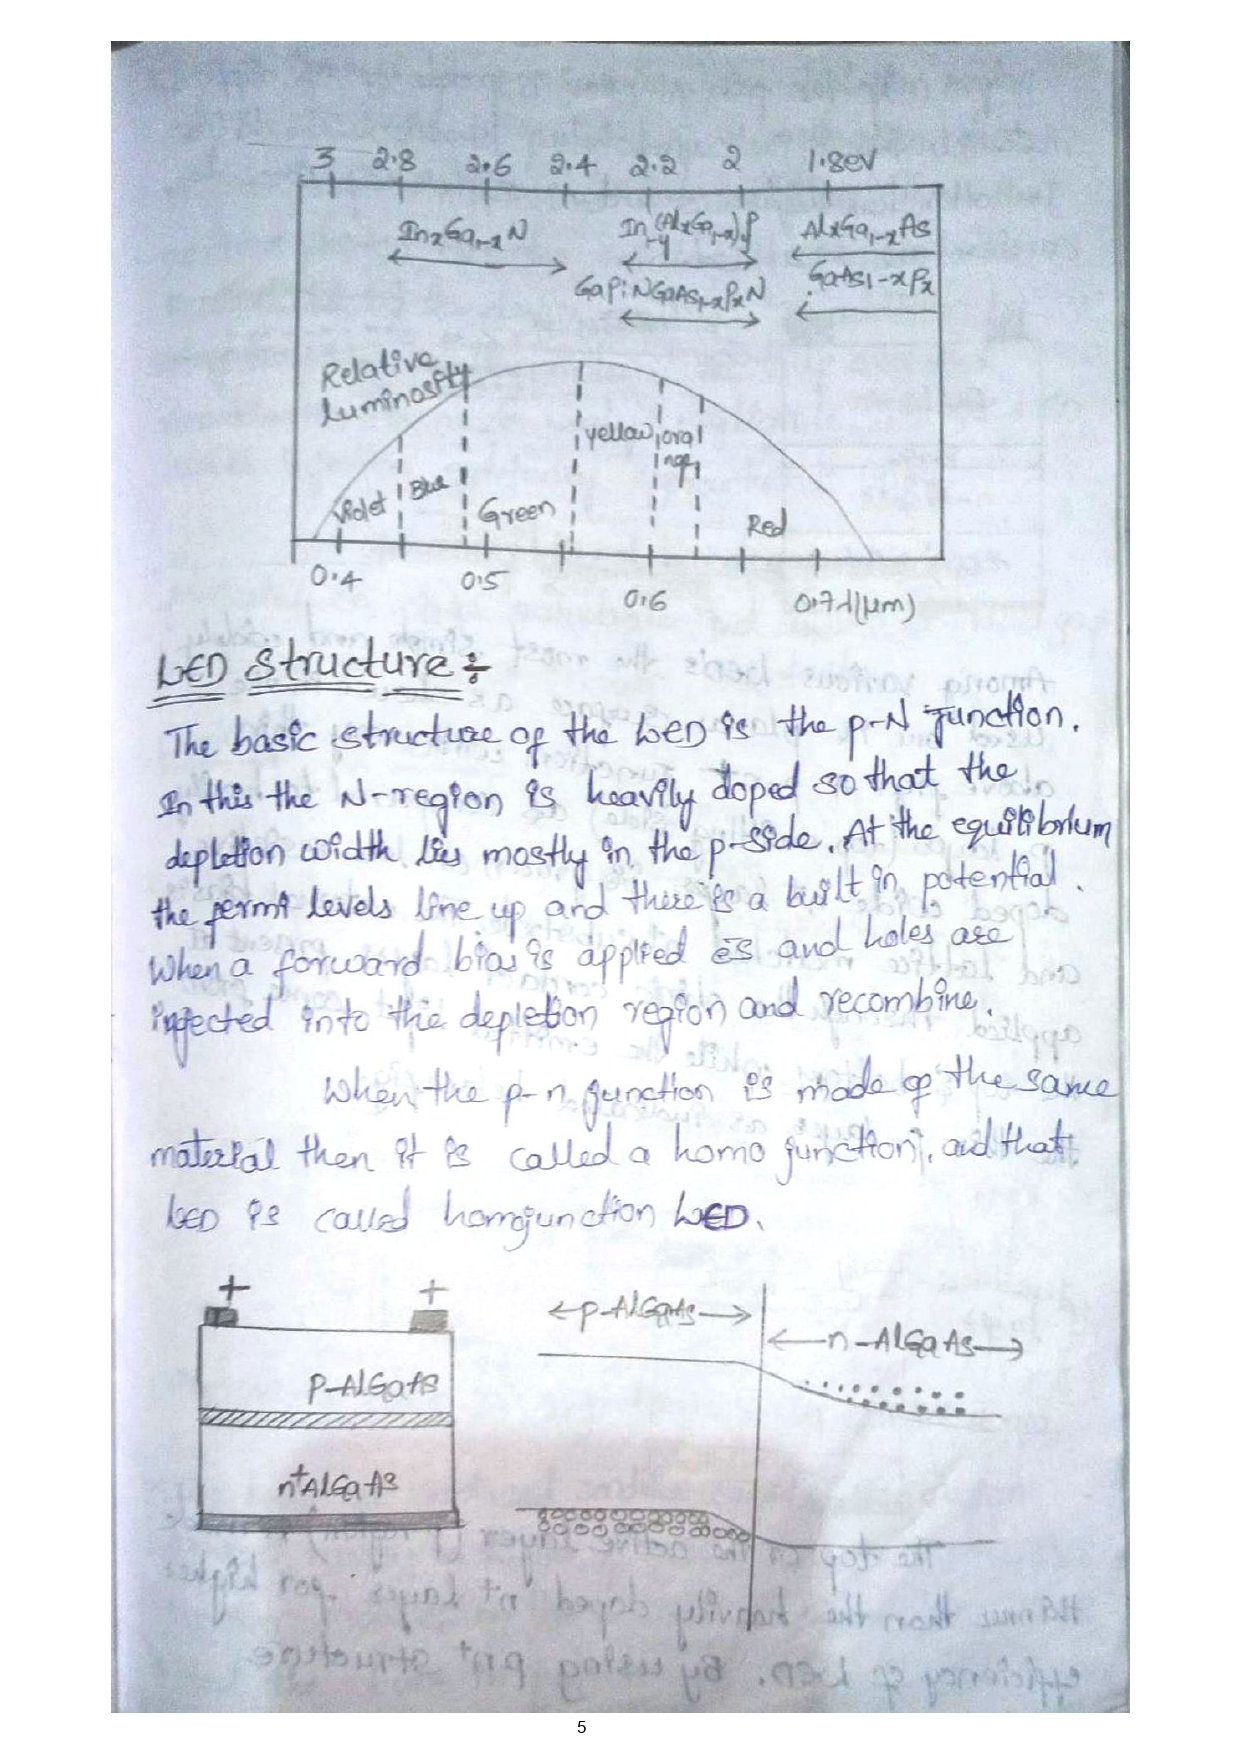 3 2.8 2.6 2.4 2.2 2 1.8eV
InxGa1-xN In1-y(AlxGa1-x)yP AlxGa1-xAs
GaP:NGaAs1-xPxN GaAs1-xPx
Relative
luminosity
yellow ora
nge
Violet Blue Green Red
0.4 0.5 0.6 0.7 λ(μm)
LED Structure:-
The basic structure of the LED is the p-N Junction.
In this the N-region is heavily doped so that the
depletion width lies mostly in the p-side. At the equilibrium
the fermi levels line up and there is a built in potential.
When a forward bias is applied ēs and holes are
injected into the depletion region and recombine.
When the p-n junction is made of the same
material then it is called a homo junction, and that
LED is called homojunction LED.
+ +
p-AlGaAs
n+AlGaAs
p-AlGaAs
n-AlGaAs
5